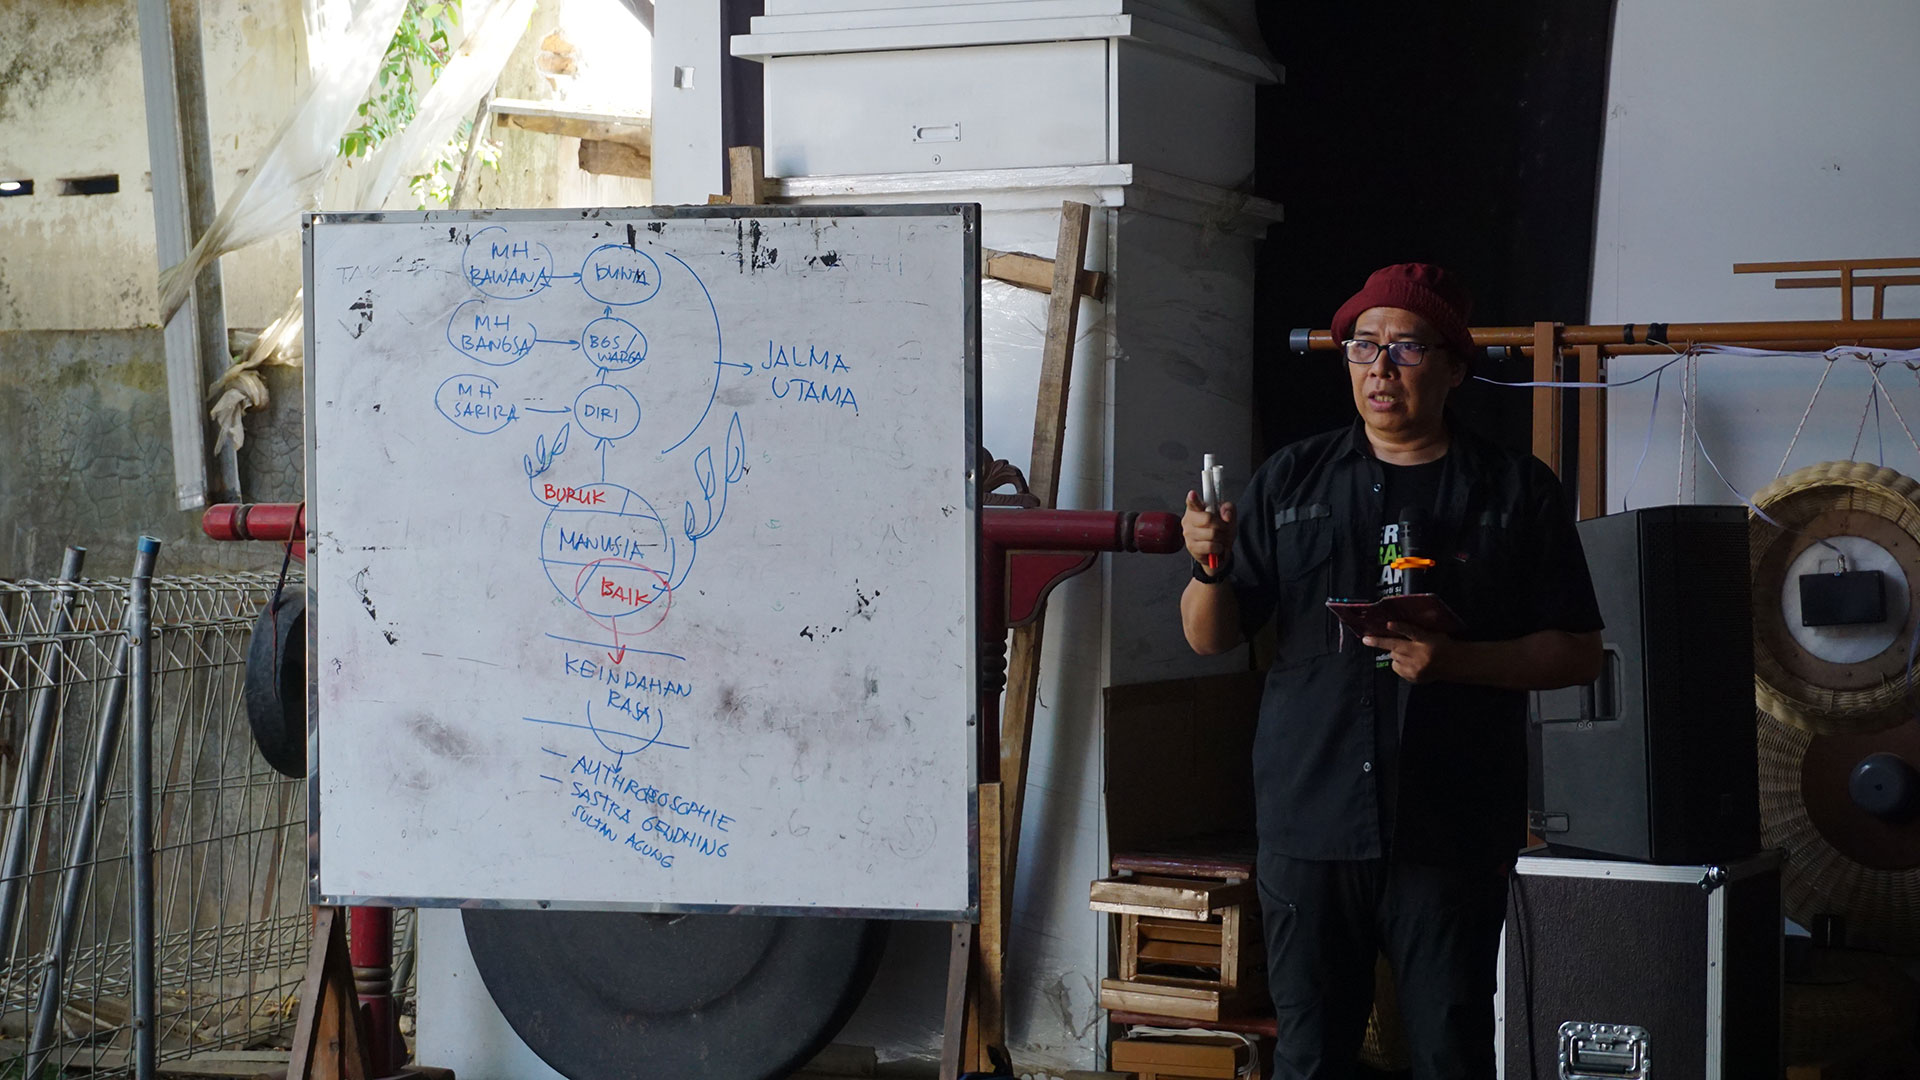 MH
BAWANA
DUNIA
MH
BANGSA
BGS/
WARGA
JALMA
UTAMA
MH
SARIRA
DIRI
BURUK
MANUSIA
BAIK
KEINDAHAN
RASA
- AUTHROPOSOPHIE
- SASTRA GENDHING
SULTAN AGUNG